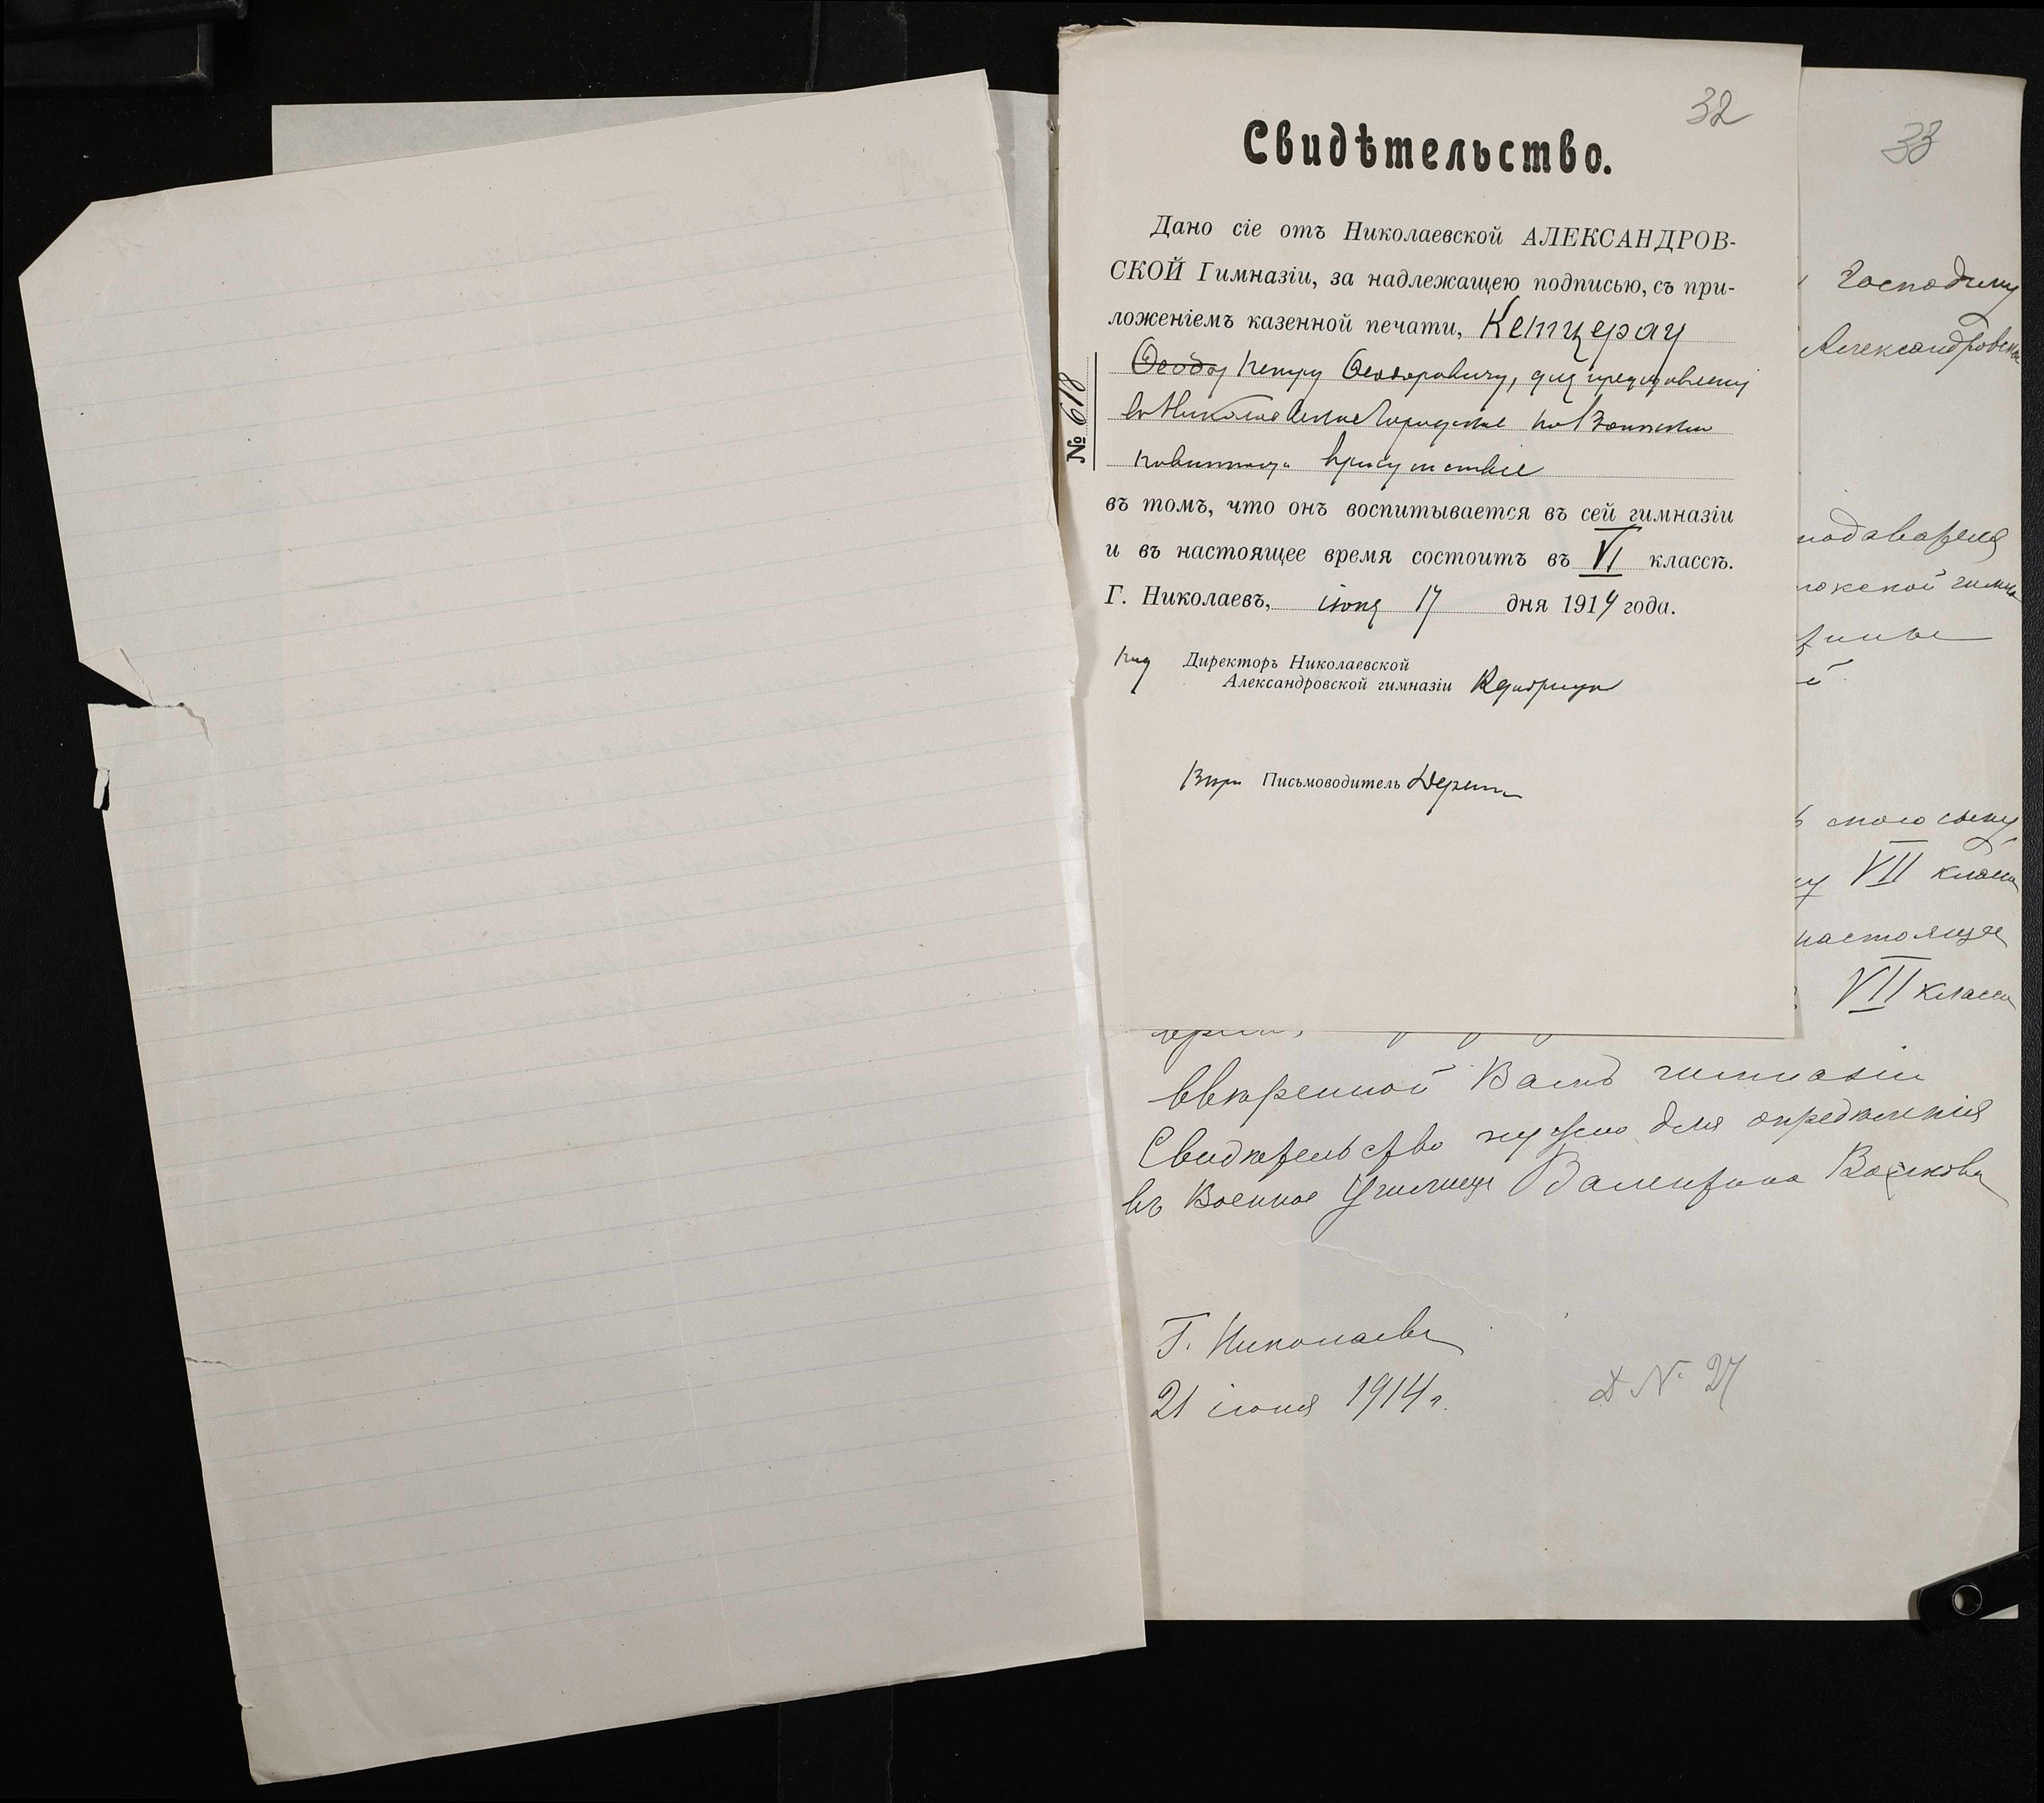 32
Свидѣтельство.
Дано сіе отъ Николаевской АЛЕКСАНДРОВ-
СКОЙ Гимназіи, за надлежащею подписью, съ при-
ложеніемъ казенной печати, Кетцерау
Ѳеодо Петру Ѳеодоровичу, для представленія
въ Николаевское Городское по воинской
повинности присутствіе
№ 618
въ томъ, что онъ воспитывается въ сей гимназіи
и въ настоящее время состоитъ въ VI классѣ.
Г. Николаевъ, іюня 17 дня 1914 года.
Директоръ Николаевской
Александровской гимназіи
Письмоводитель
33
Господину
Александровской
подавателя
гимна
моего сыну
VII класса
настоящее
VII класса
ввѣренной Вамъ гимназіи
Свидѣтельство нужно для опредѣленія
въ Военное Училище Валентина Волкова
Г. Николаевъ
21 іюня 1914 г.
Д № 27